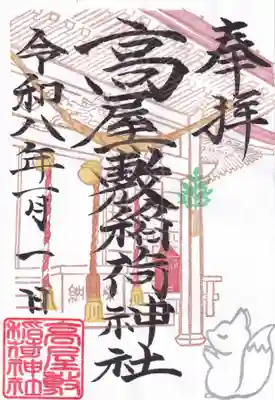 奉拝
高屋敷稲荷神社
令和八年一月一日
高屋敷
稲荷神社
納